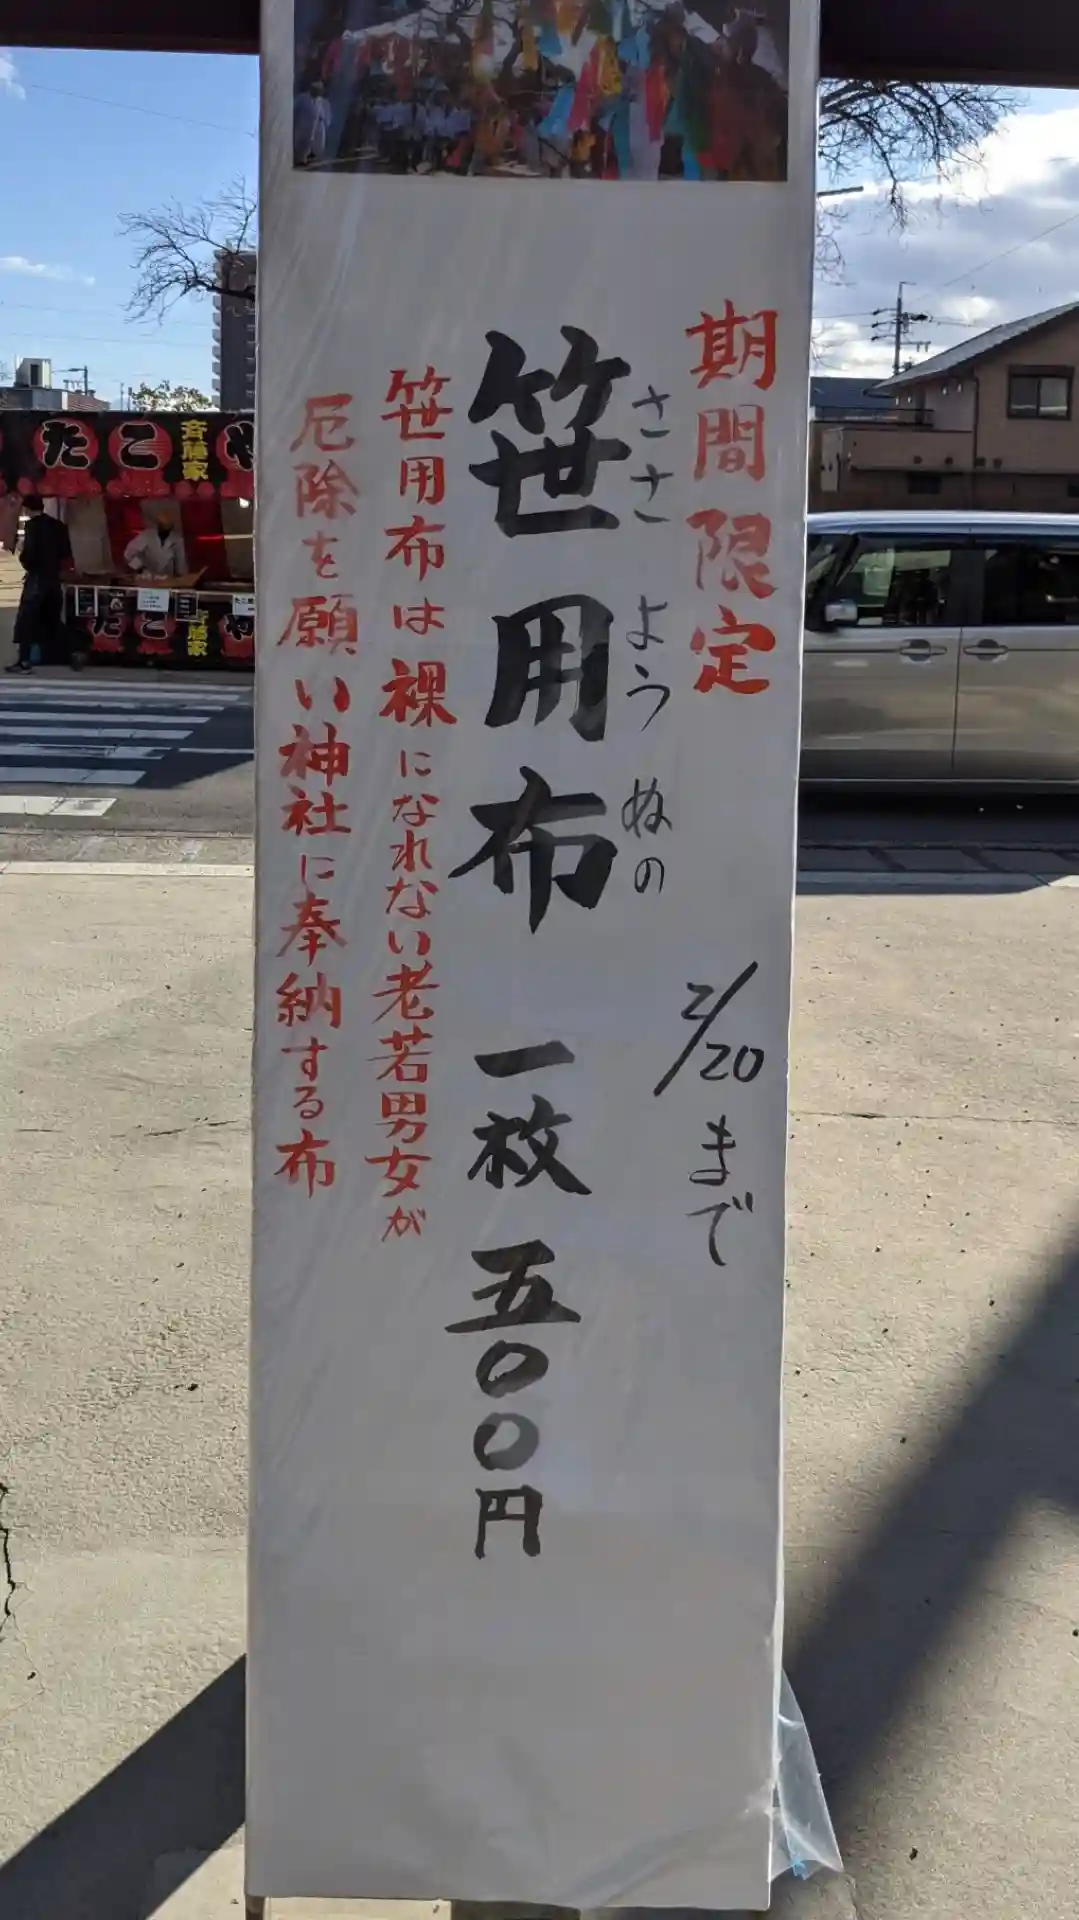 期間限定 2/20まで
ささ よう ぬの
笹用布 一枚 五〇〇円
笹用布は裸になれない老若男女が
厄除を願い神社に奉納する布
たこ 斉藤家 や
たこ 斉藤家 や